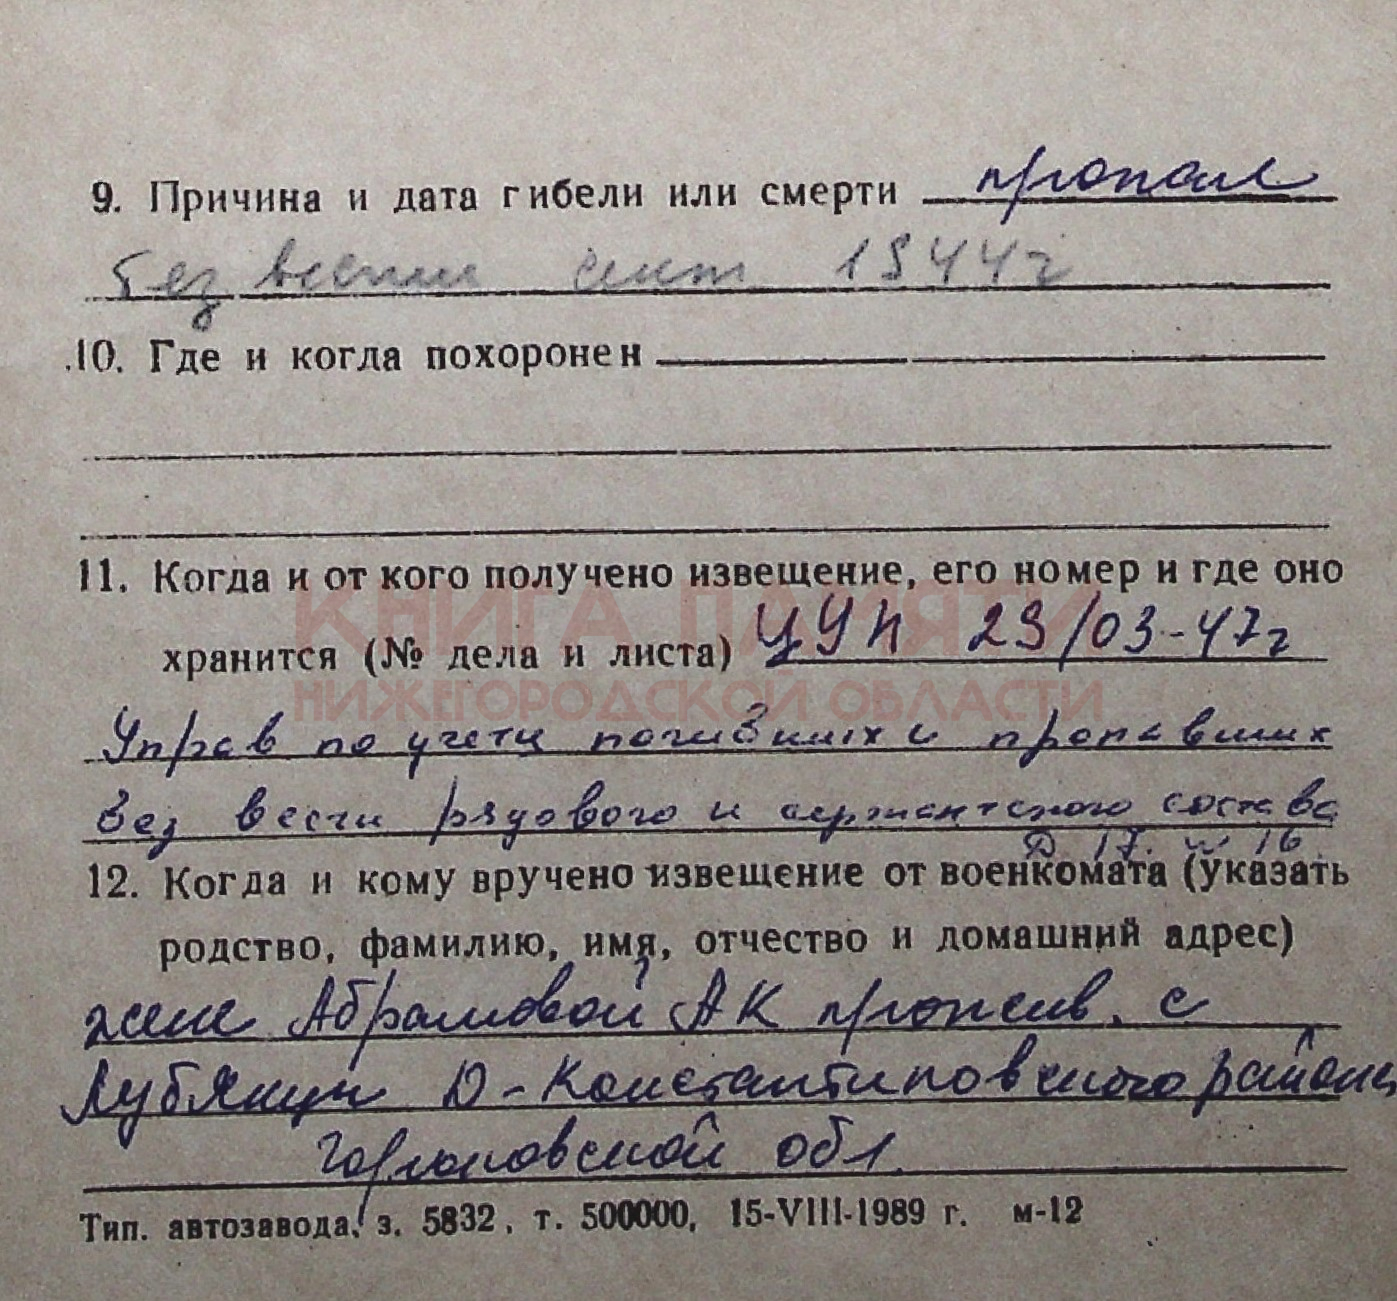 9. Причина и дата гибели или смерти пропал
без вести сент 1944г
10. Где и когда похоронен
11. Когда и от кого получено извещение, его номер и где оно
КНИГА ПАМЯТИ
хранится (№ дела и листа) ЦУП 29/03-47г
НИЖЕГОРОДСКОЙ ОБЛАСТИ
Управ по учету погибших и пропавших
без вести рядового и сержантского состава
Д 17. л 16
12. Когда и кому вручено извещение от военкомата (указать
родство, фамилию, имя, отчество и домашний адрес)
жене Абрамовой АК прожив. с
Лубянцы Д-Константиновского района
Горьковской обл.
Тип. автозавода, з. 5832, т. 500000, 15-VIII-1989 г. м-12